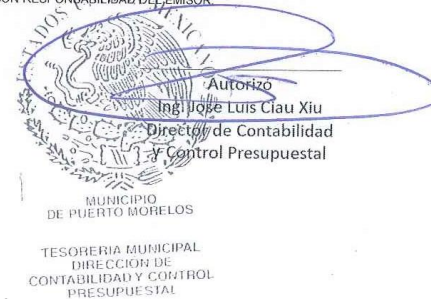 CON RESPONSABILIDAD DEL EMISOR.
ESTADOS MEXICANOS
Autorizó
Ing. Jose Luis Ciau Xiu
Director de Contabilidad
y Control Presupuestal
MUNICIPIO
DE PUERTO MORELOS
TESORERIA MUNICIPAL
DIRECCIÓN DE
CONTABILIDAD Y CONTROL
PRESUPUESTAL